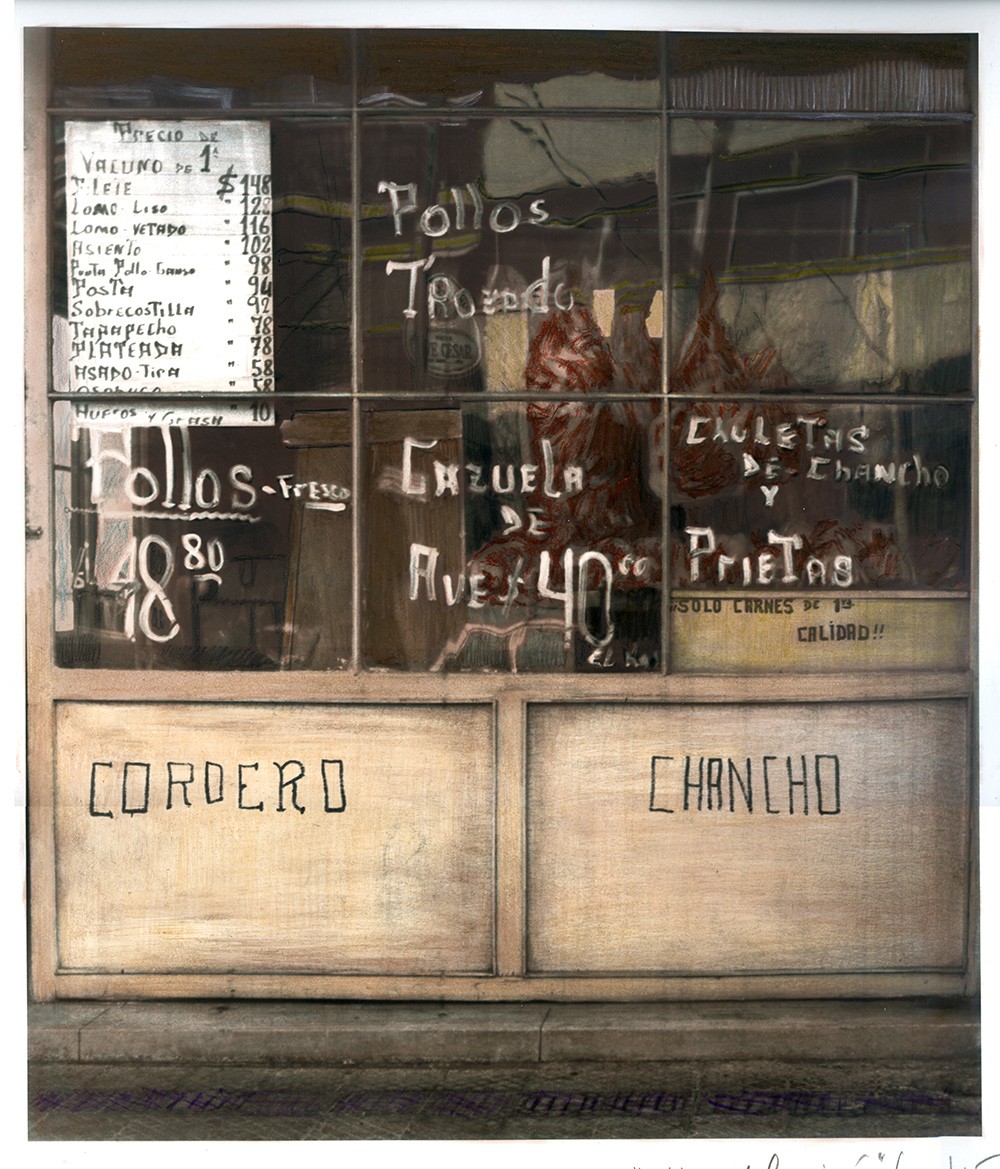 PRECIO DE
VACUNO DE 1ª
FILETE $ 148
LOMO-LISO " 122
LOMO-VETADO " 116
ASIENTO 102
Punta Pollo-Ganso " 98
POSTA " 94
SOBRECOSTILLA " 92
TAPAPECHO " 78
PLATEADA " 78
ASADO-TIRA " 58
OSOBUCO 58
HUESOS Y GRASA " 10
Pollos
TROZADO
POLLOS-FRESCO
18 80
CAZUELA
DE
AVE 40 00
EL
CHULETAS
DE-CHANCHO
Y
PRIETAS
¡SOLO CARNES DE 1ra
CALIDAD!!
CORDERO
CHANCHO